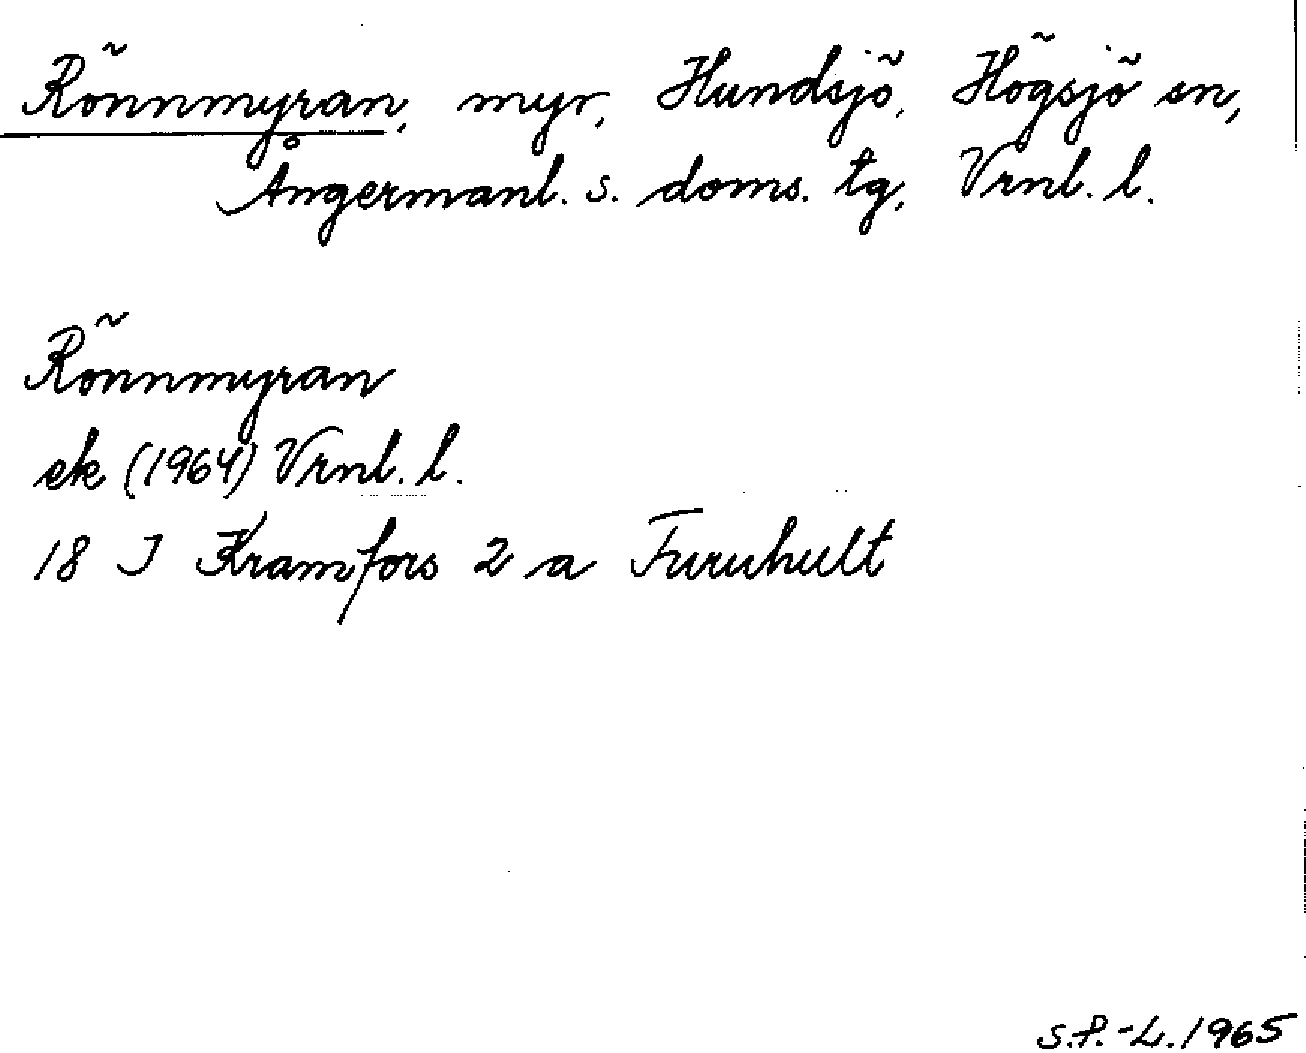 Rönnmyran, myr, Hundsjö, Högsjö sn,
Ångermanl. s. doms. tg, Vrnl. l.
Rönnmyran
ek (1964) Vrnl. l.
18 J Kramfors 2 a Furuhult
S.P.-L. 1965